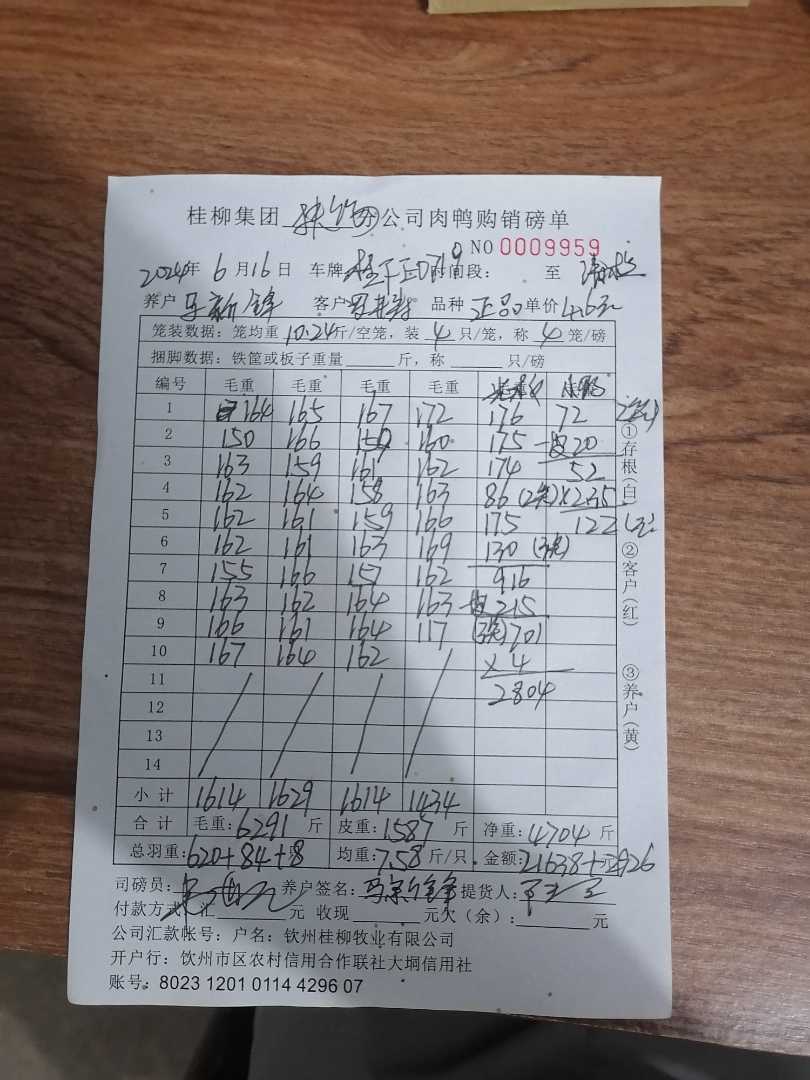 桂柳集团 公司肉鸭购销磅单
NO 0009959
2024年 6月16日 车牌 时间段: 至
养户 马新锋 客户 品种 正品 单价 4.6元
笼装数据: 笼均重 10.24 斤/空笼, 装 4 只/笼, 称 4 笼/磅
捆脚数据: 铁筐或板子重量 斤, 称 只/磅
编号 毛重 毛重 毛重 毛重
1 164 165 167 172 176 72
2 150 166 159 160 175 20
3 163 159 161 162 174 52
4 162 164 158 163 86 (2笼) ×2.35
5 162 161 159 166 175 122
6 162 161 163 169 130
7 155 166 157 162 916
8 163 162 164 163 215
9 166 161 164 117 701
10 167 164 162 ×4
11 2804
12
13
14
小计 1614 1629 1614 1434
合计 毛重: 6291 斤 皮重: 1587 斤 净重: 4704 斤
总羽重: 620+84+8 均重: 7.58 斤/只 金额: 21638
司磅员: 养户签名: 马新锋 提货人:
付款方式: 汇 元 收现 元欠(余): 元
公司汇款帐号: 户名: 钦州桂柳牧业有限公司
开户行: 钦州市区农村信用合作联社大垌信用社
账号: 8023 1201 0114 4296 07
①存根(白)
②客户(红)
③养户(黄)